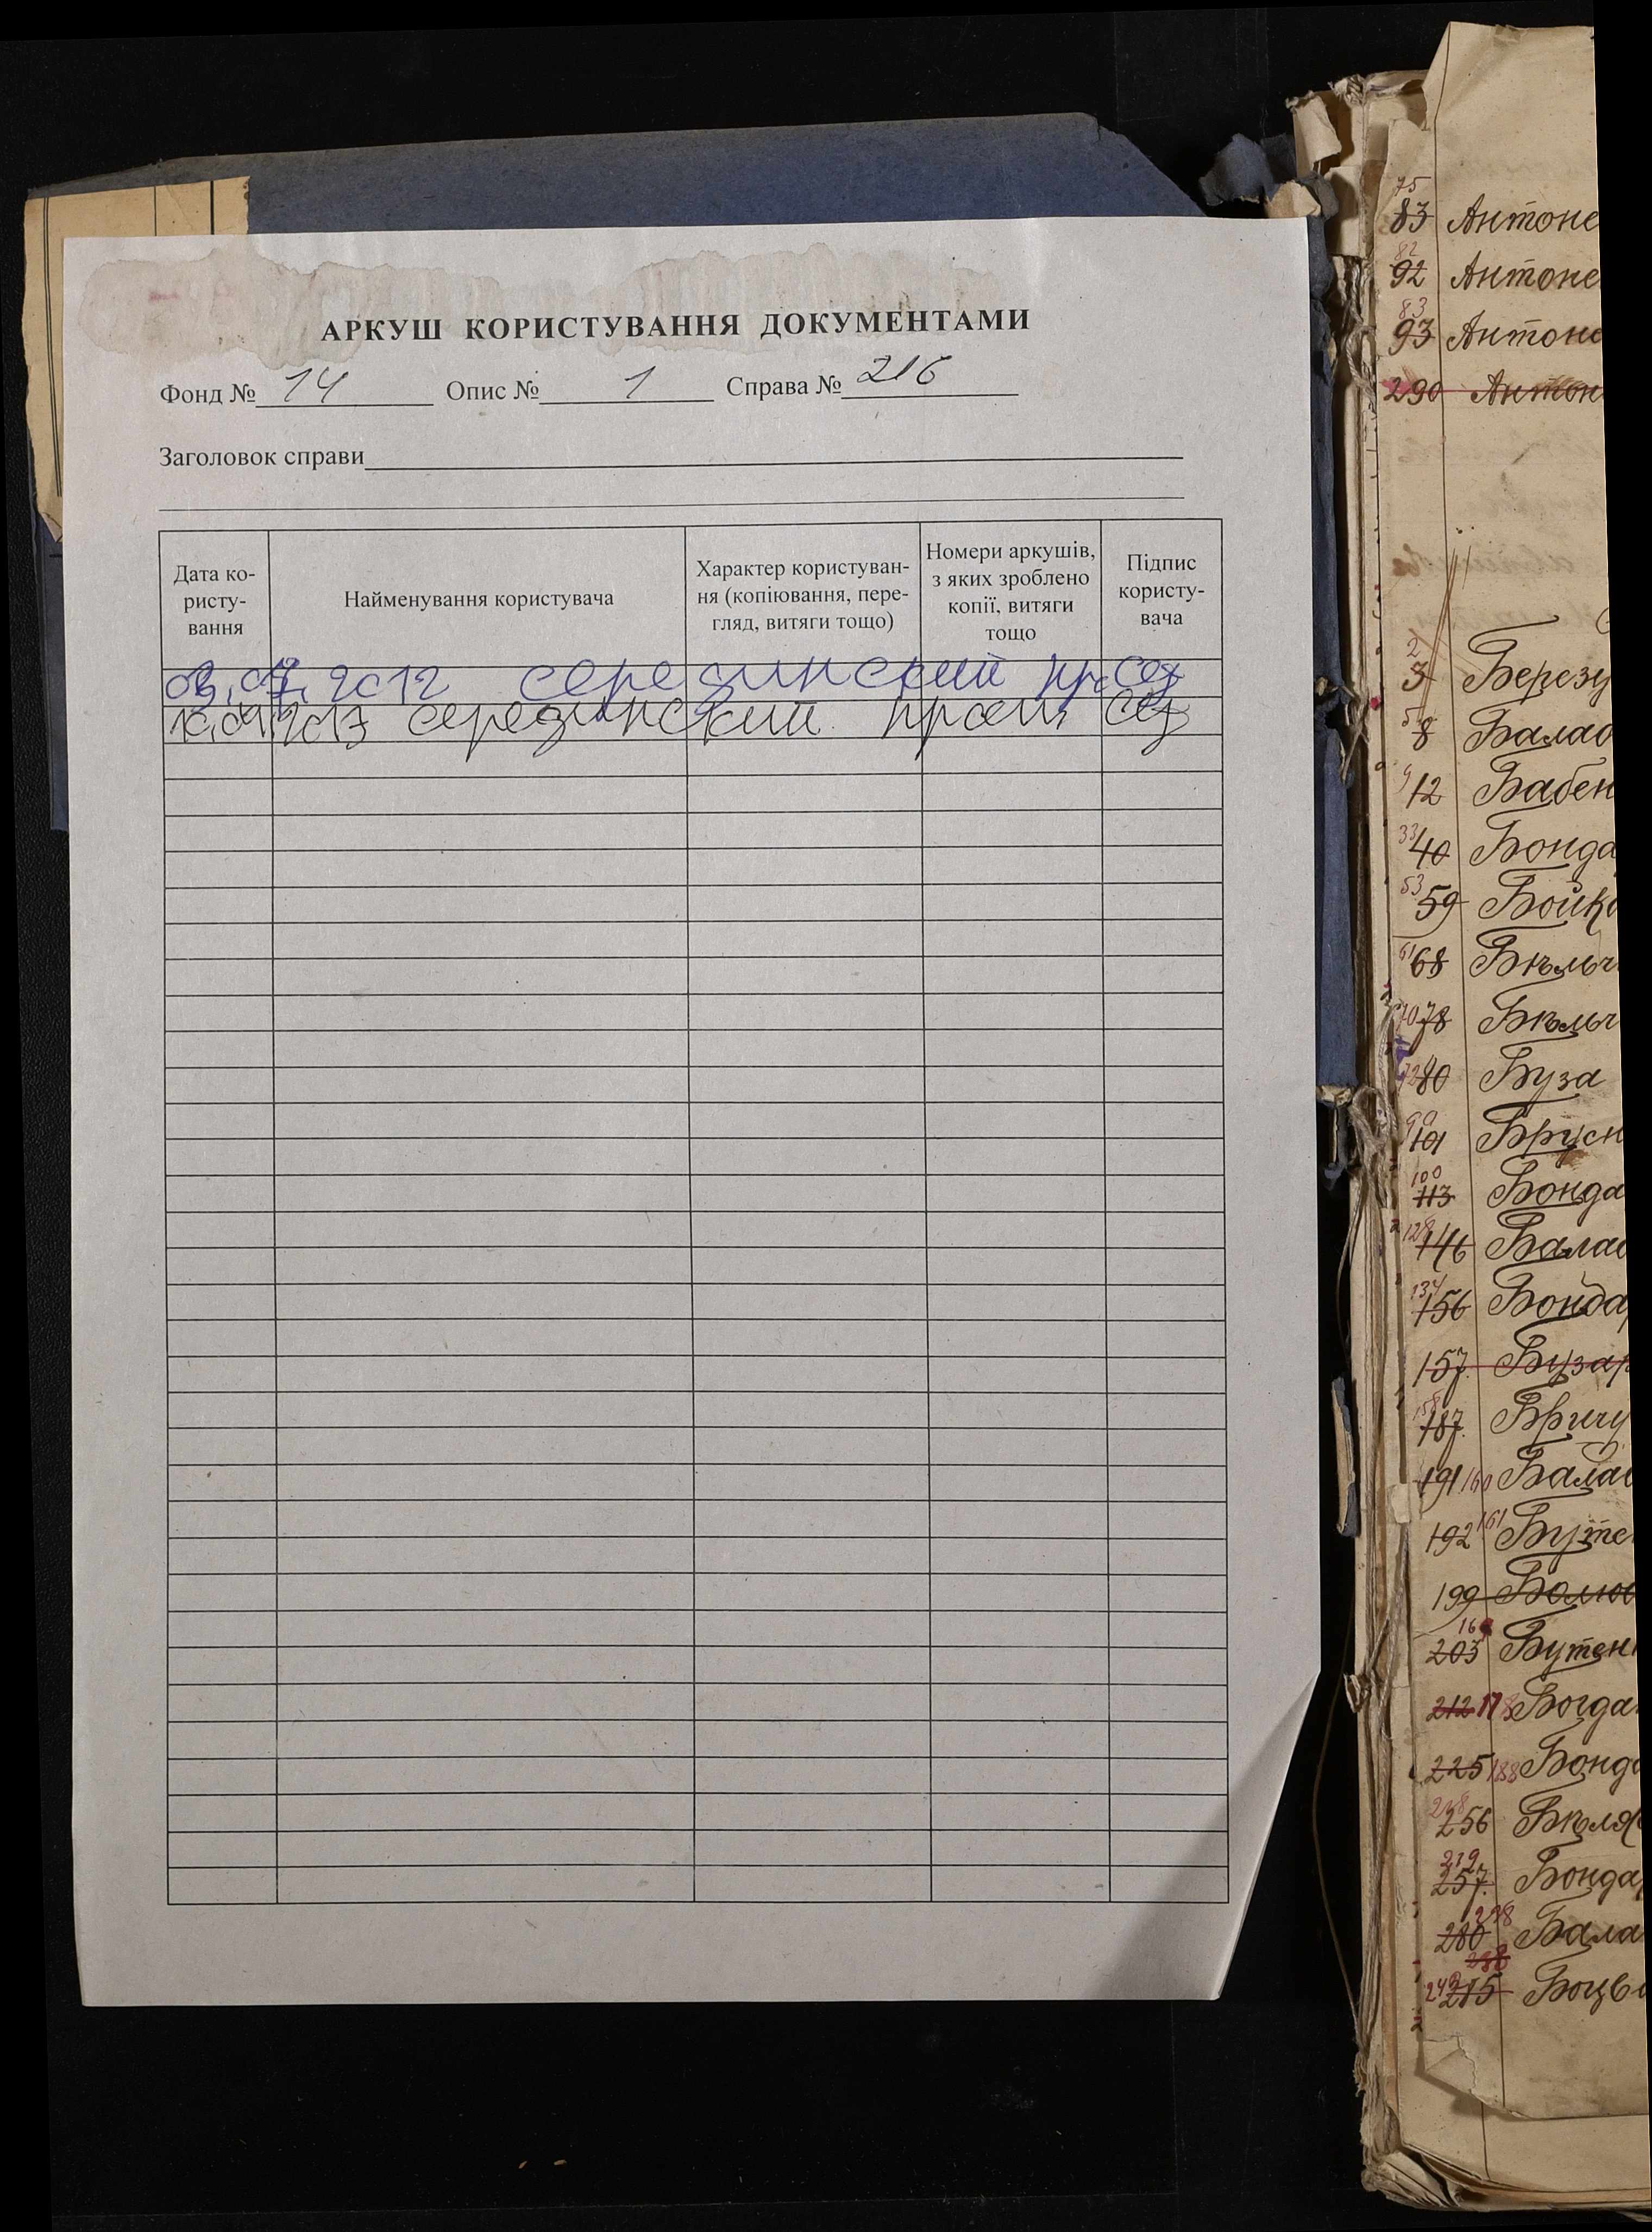 АРКУШ КОРИСТУВАННЯ ДОКУМЕНТАМИ
Фонд № 14 Опис № 1 Справа № 216
Заголовок справи
Дата ко-
ристу-
вання
Найменування користувача
Характер користуван-
ня (копіювання, пере-
гляд, витяги тощо)
Номери аркушів,
з яких зроблено
копії, витяги
тощо
Підпис
користу-
вача
2012 серединский
2013 серединский
75
83 Антоне
82
92 Антоне
83
93 Антоне
290 Антон
2
3 Березу
5 8 Балао
9 12 Бабен
33 40 Бонда
53 59 Бойко
61 68 Бѣльч
70 78 Бѣльч
72 80 Буза
90
101 Брусн
100
113 Бонда
128 146 Балао
134
156 Бондар
157 Бузар
158
187 Бричу
191 160 Балаб
192 161 Буте
199
203 Бутен
212 178 Богдан
225 188 Бонда
218
256 Бѣля
219
257 Бондар
238
280 Бала
215 Боцв